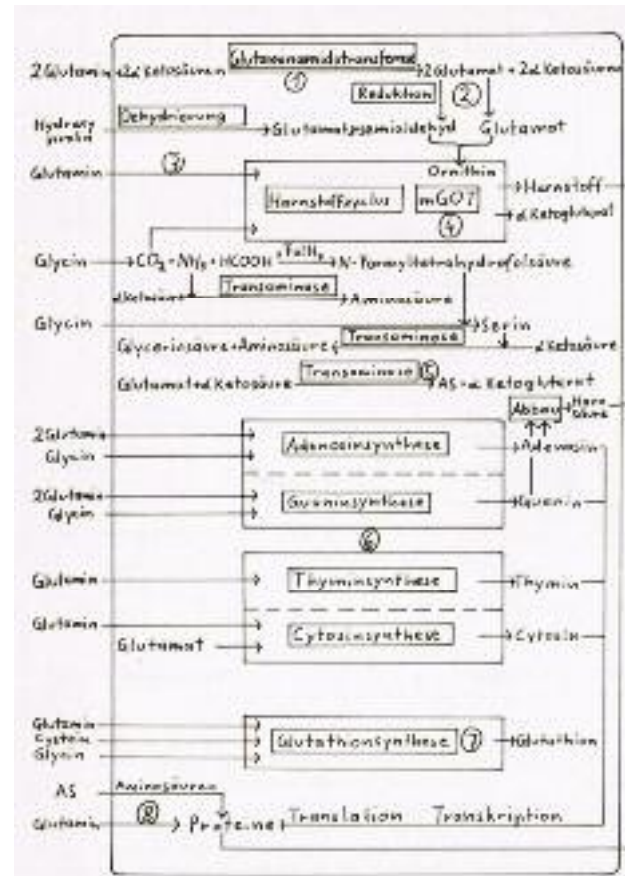 Glutaminamidotransferase
2 Glutamin + 2α Ketosäuren → 2 Glutamat + 2α Ketosäure
①
Reduktion ②
Dehydrierung
Hydroxy → Glutamatsemialdehyd Glutamat
Glutamin ③ Ornithin
Harnstoffzyclus mGOT → Harnstoff
④ → α Ketoglutarat
Glycin → CO₂ + NH₃ + HCOOH → N-Formyltetrahydrofolsäure
α Ketosäure Transaminase → Aminosäure
Glycin → Serin
Glycerinsäure + Aminosäure Transaminase α Ketosäure
Glutamat + α Ketosäure Transaminase ⑤ → AS + α Ketoglutarat
Abbau → Harnsäure
2 Glutamin
Glycin Adenosinsynthese → Adenosin
2 Glutamin
Glycin Guaninsynthese → Guanin
⑥
Glutamin → Thyminsynthese → Thymin
Glutamin → Cytosinsynthese → Cytosin
Glutamat →
Glutamin
Cystein → Glutathionsynthese ⑦ → Glutathion
Glycin
AS Aminosäuren
Glutamin ⑧ → Proteine Translation Transkription